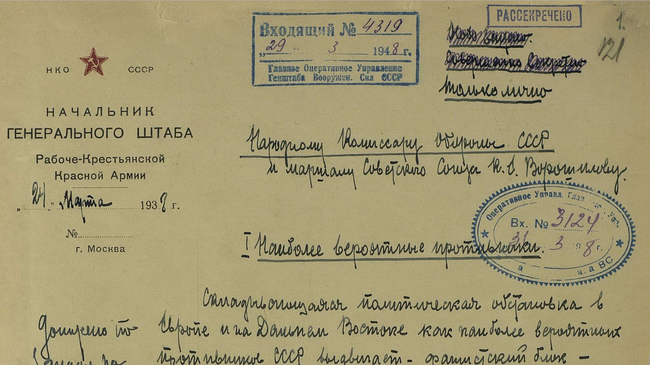 РАССЕКРЕЧЕНО
1.
121
Входящий № 4319
"29" 3 1948 г.
Главное Оперативное Управление
Генштаба Вооружен. Сил СССР
только лично
НКО СССР
НАЧАЛЬНИК
ГЕНЕРАЛЬНОГО ШТАБА
Рабоче-Крестьянской
Красной Армии
"24" Марта 1938 г.
№
г. Москва
Народному Комиссару Обороны СССР
и маршалу Советского Союза К. Е. Ворошилову.
Оперативное Управ.
Вх. № 3124
31 3
I Наиболее вероятные противники.
Складывающаяся политическая обстановка в
Европе и на Дальнем Востоке как наиболее вероятных
противников СССР выдвигает - фашистский блок -